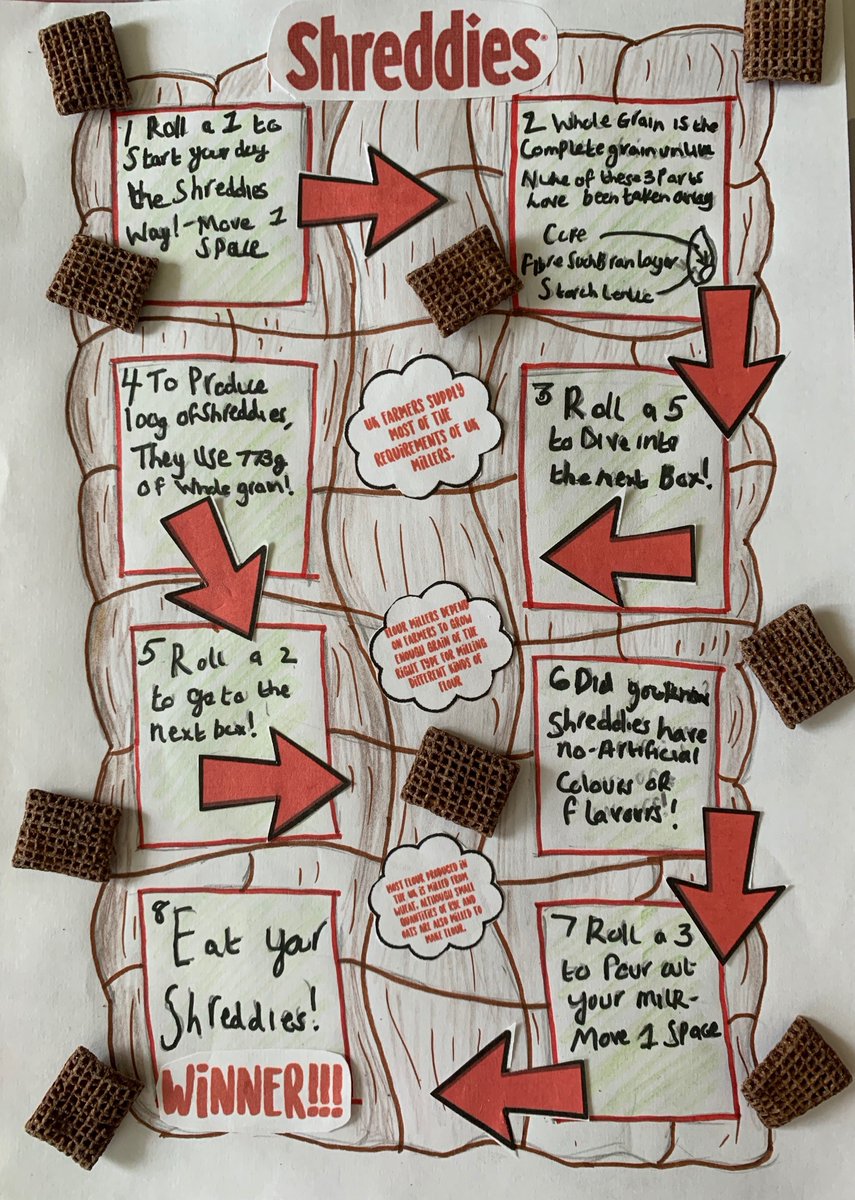 Shreddies
1 Roll a 1 to
Start your day
the Shreddies
Way!-Move 1
Space
2 Whole Grain is the
Complete grain unlike
None of these 3 Parts
have been taken away
Core
Fibre Such Bran layer
Starch
3 Roll a 5
to Dive into
the next Box!
UK FARMERS SUPPLY
MOST OF THE
REQUIREMENTS OF UK
MILLERS.
4 To Produce
100g of Shreddies,
They use 773g
of whole grain!
5 Roll a 2
to go to the
next box!
FLOUR MILLERS DEPEND
ON FARMERS TO GROW
ENOUGH GRAIN OF THE
RIGHT TYPE FOR MILLING
DIFFERENT KINDS OF
FLOUR
6 Did you know
Shreddies have
no-Artificial
Colours or
flavours!
7 Roll a 3
to Pour out
your milk-
Move 1 Space
MOST FLOUR PRODUCED IN
THE UK IS MILLED FROM
WHEAT, ALTHOUGH SMALL
QUANTITIES OF RYE AND
OATS ARE ALSO MILLED TO
MAKE FLOUR.
8 Eat your
Shreddies!
WINNER!!!